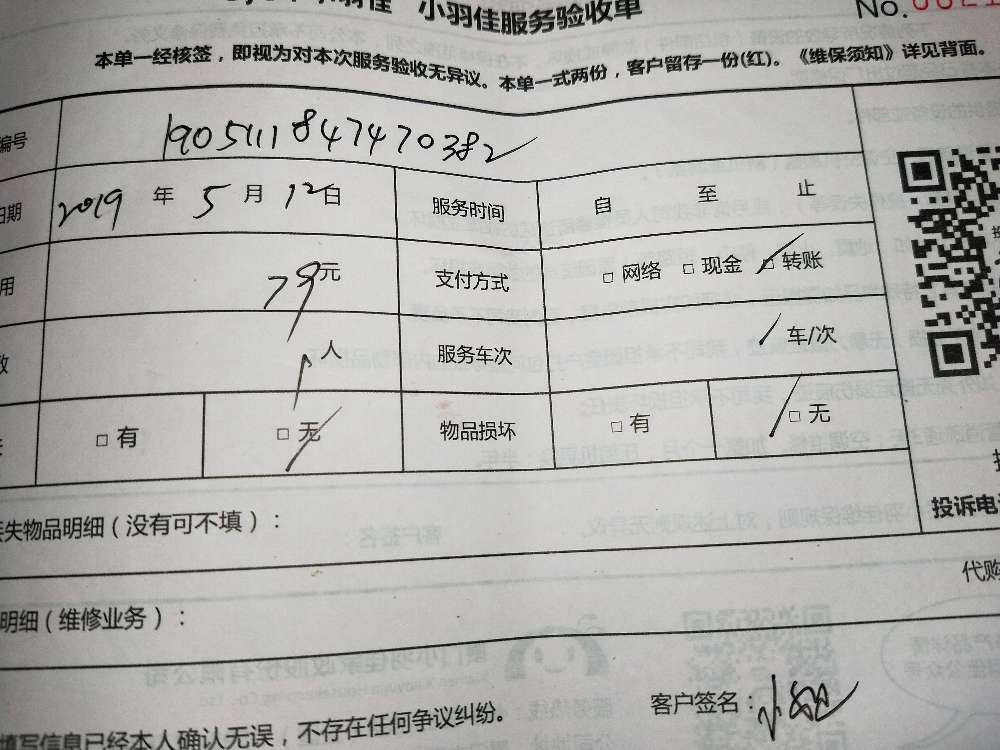 小羽佳服务验收单 No.
本单一经核签，即视为对本次服务验收无异议。本单一式两份，客户留存一份(红)。《维保须知》详见背面。
编号 190511184747038 2
日期 2019 年 5 月 12日 服务时间 自 至 止
用 79元 支付方式 □ 网络 □ 现金 □ 转账
数 1人 服务车次 1 车/次
□ 有 □ 无 物品损坏 □ 有 □ 无
失物品明细（没有可不填）：
投诉电
代购
明细（维修业务）：
填写信息已经本人确认无误，不存在任何争议纠纷。 客户签名：